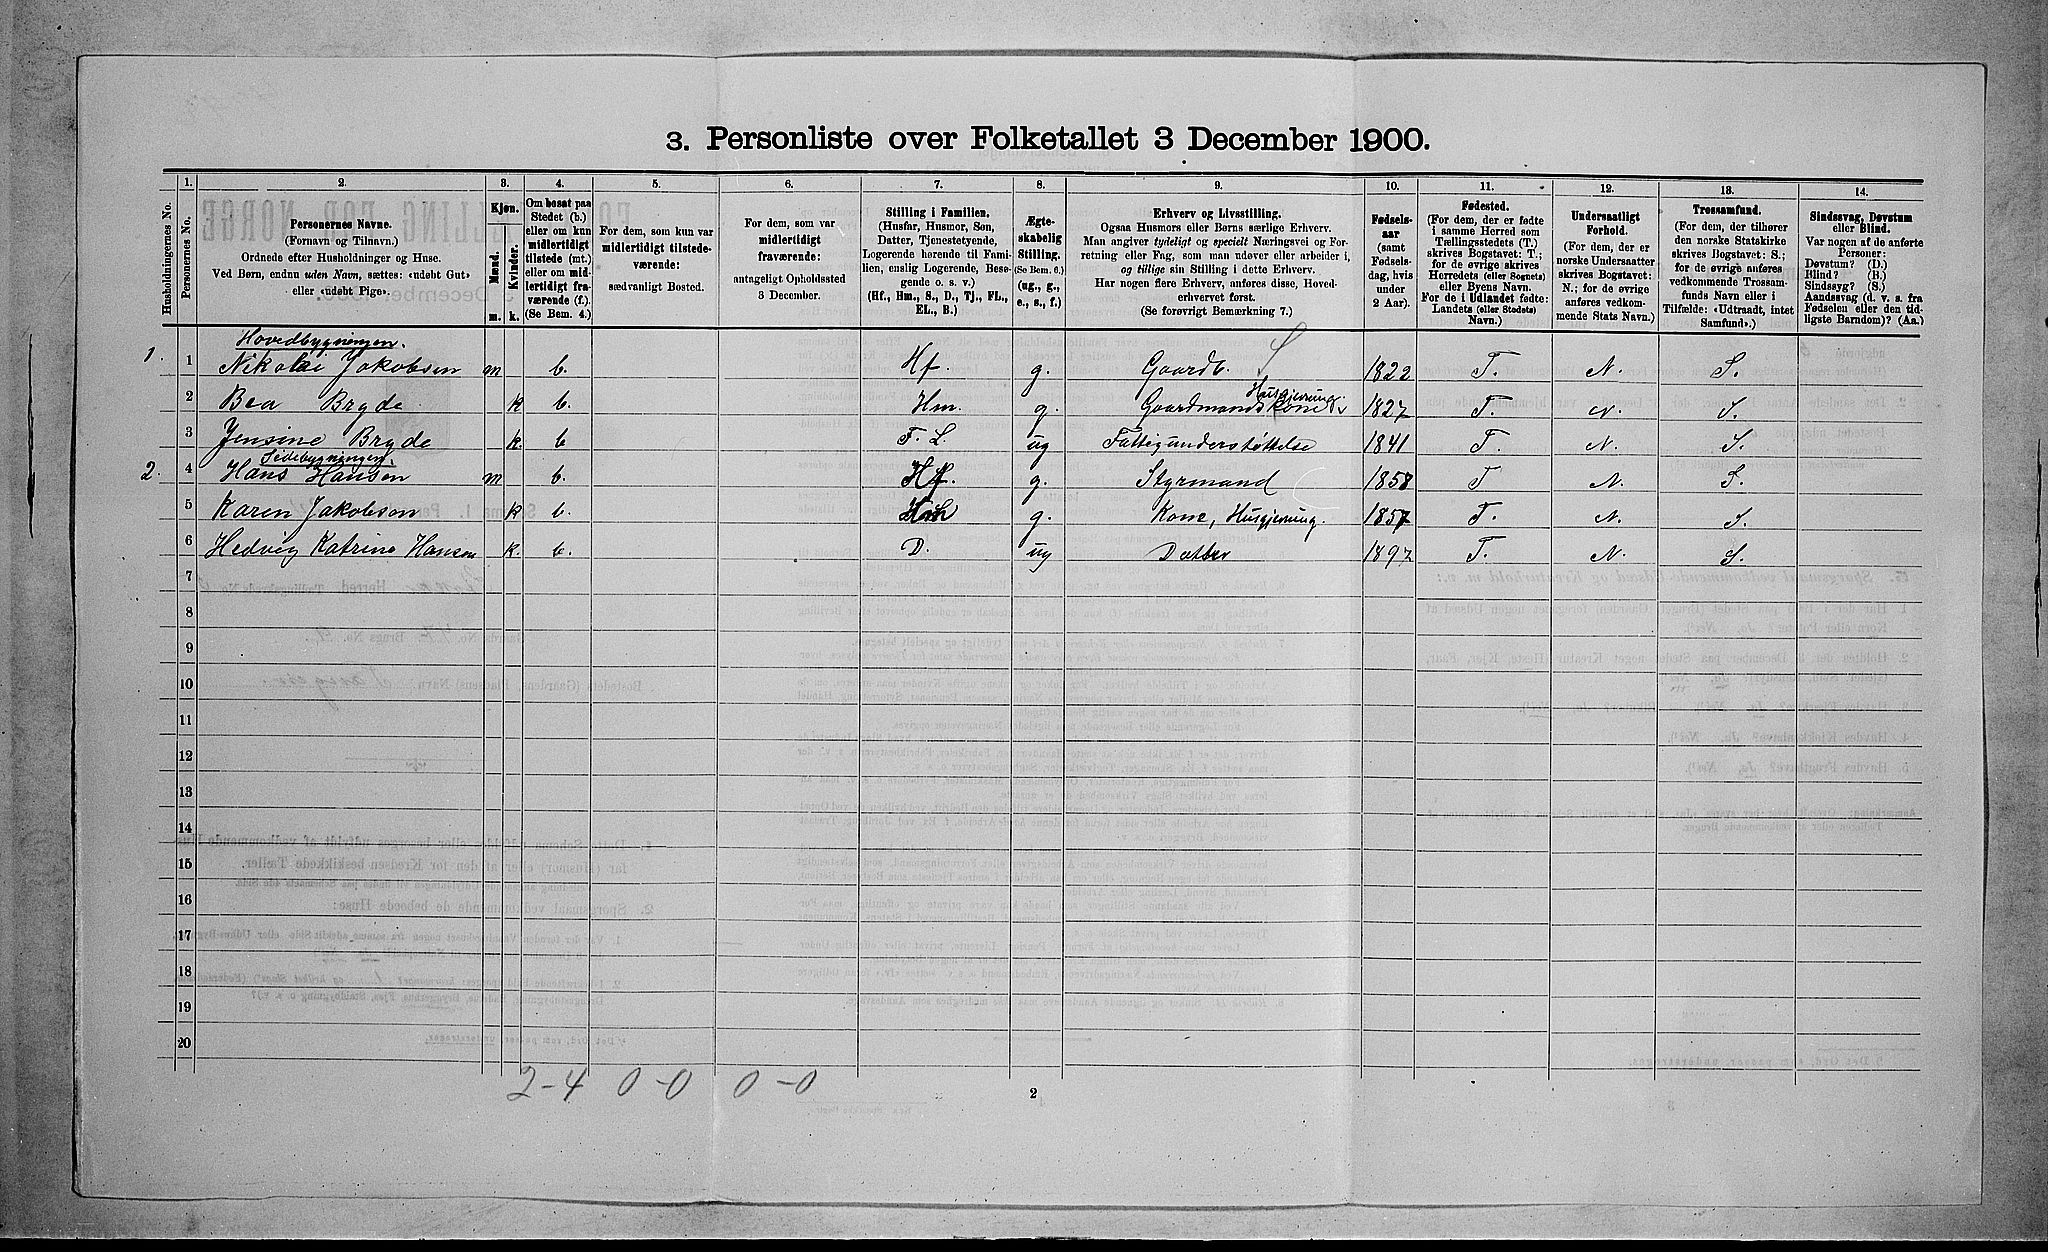 3. Personliste over Folketallet 3 December 1900.
1. 2. 3. 4. 5. 6. 7. 8. 9. 10. 11. 12. 13. 14.
Husholdningernes No.
Personernes No.
Personernes Navne.
(Fornavn og Tilnavn.)
Ordnede efter Husholdninger og Huse.
Ved Børn, endnu uden Navn, sættes: «udøbt Gut»
eller «udøbt Pige».
Kjøn.
Mænd.
Kvinder.
m. k.
Om bosat paa
Stedet (b.)
eller om kun
midlertidigt
tilstede (mt.)
eller om mid-
lertidigt fra-
værende (f.)
(Se Bem. 4.)
For dem, som kun var
midlertidigt tilstede-
værende:
sædvanligt Bosted.
For dem, som var
midlertidigt
fraværende:
antageligt Opholdssted
3 December.
Stilling i Familien.
(Husfar, Husmor, Søn,
Datter, Tjenestetyende,
Logerende hørende til Fami-
lien, enslig Logerende, Besø-
gende o. s. v.)
(Hf., Hm., S., D., Tj., FL.,
EL., B.)
Ægte-
skabelig
Stilling.
(Se Bem. 6.)
(ug., g.,
e., s., f.)
Erhverv og Livsstilling.
Ogsaa Husmors eller Børns særlige Erhverv.
Man angiver tydeligt og specielt Næringsvei og For-
retning eller Fag, som man udøver eller arbeider i,
og tillige sin Stilling i dette Erhverv.
Har nogen flere Erhverv, anføres disse, Hoved-
erhvervet først.
(Se forøvrigt Bemærkning 7.)
Fødsels-
aar
(samt
Fødsels-
dag, hvis
under
2 Aar).
Fødested.
(For dem, der er fødte
i samme Herred som
Tællingsstedets (T.)
skrives Bogstavet: T.;
for de øvrige skrives
Herredets (eller Sognets)
eller Byens Navn.
For de i Udlandet fødte:
Landets (eller Stedets)
Navn.)
Undersaatligt
Forhold.
(For dem, der er
norske Undersaatter
skrives Bogstavet:
N.; for de øvrige
anføres vedkom-
mende Stats Navn.)
Trossamfund.
(For dem, der tilhører
den norske Statskirke
skrives Bogstavet: S.;
for de øvrige anføres
vedkommende Trossam-
funds Navn eller i
Tilfælde: «Udtraadt, intet
Samfund».)
Sindssvag, Døvstum
eller Blind.
Var nogen af de anførte
Personer:
Døvstum? (D.)
Blind? (B.)
Sindssyg? (S.)
Aandssvag (d. v. s. fra
Fødselen eller den tid-
ligste Barndom)? (Aa.)
Hovedbygningen.
1. 1 Nikolai Jakobsen m b. Hf. g. Gaardb. S 1822 T. N. S.
2 Bea Bryde k b. Hm. g. Gaardmandskone Husgjerning. 1827 T. N. S.
3 Jensine Bryde k. b F. L. ug Fattigunderstøttelse 1841 T. N. S.
Sidebygningen.
2. 4 Hans Hansen m b. Hf. g. Styrmand 1858 T N. S.
5 Karen Jakobsen k b. g. Kone, Husgjerning. 1857 T. N. S.
6 Hedvig Katrine Hansen k. b. D. ug Datter 1897 T. N. S.
7
8
9
10
11
12
13
14
15
16
17
18
19
20
2-4 0-0 0-0
2